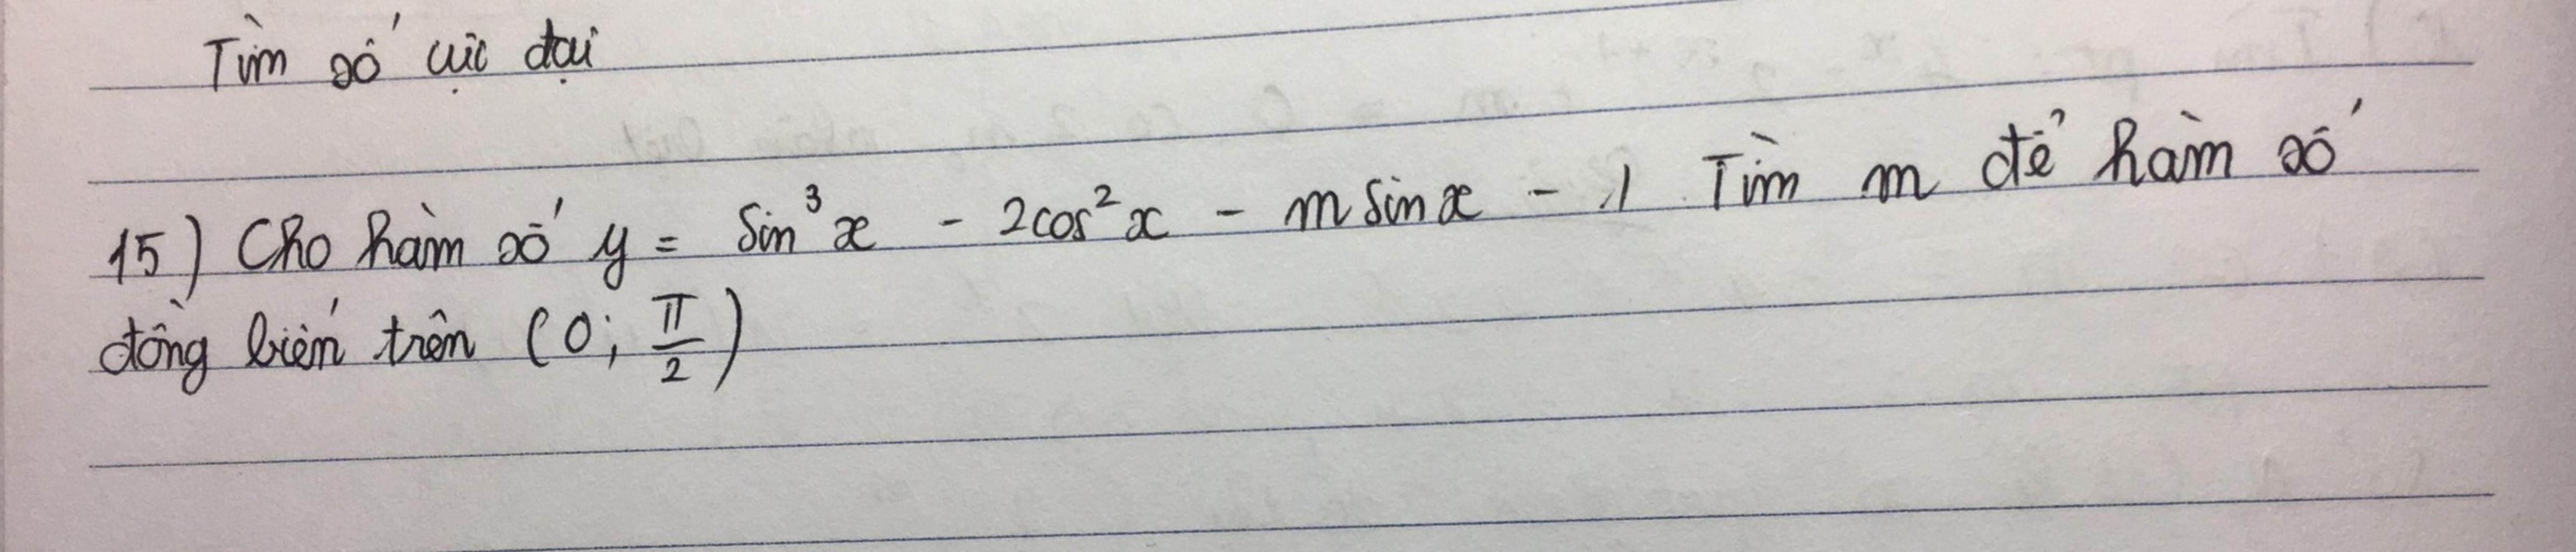 Tìm số cực đại
15) Cho hàm số y = sin³x - 2cos²x - m sinx - 1 Tìm m để hàm số
đồng biến trên (0; π/2)